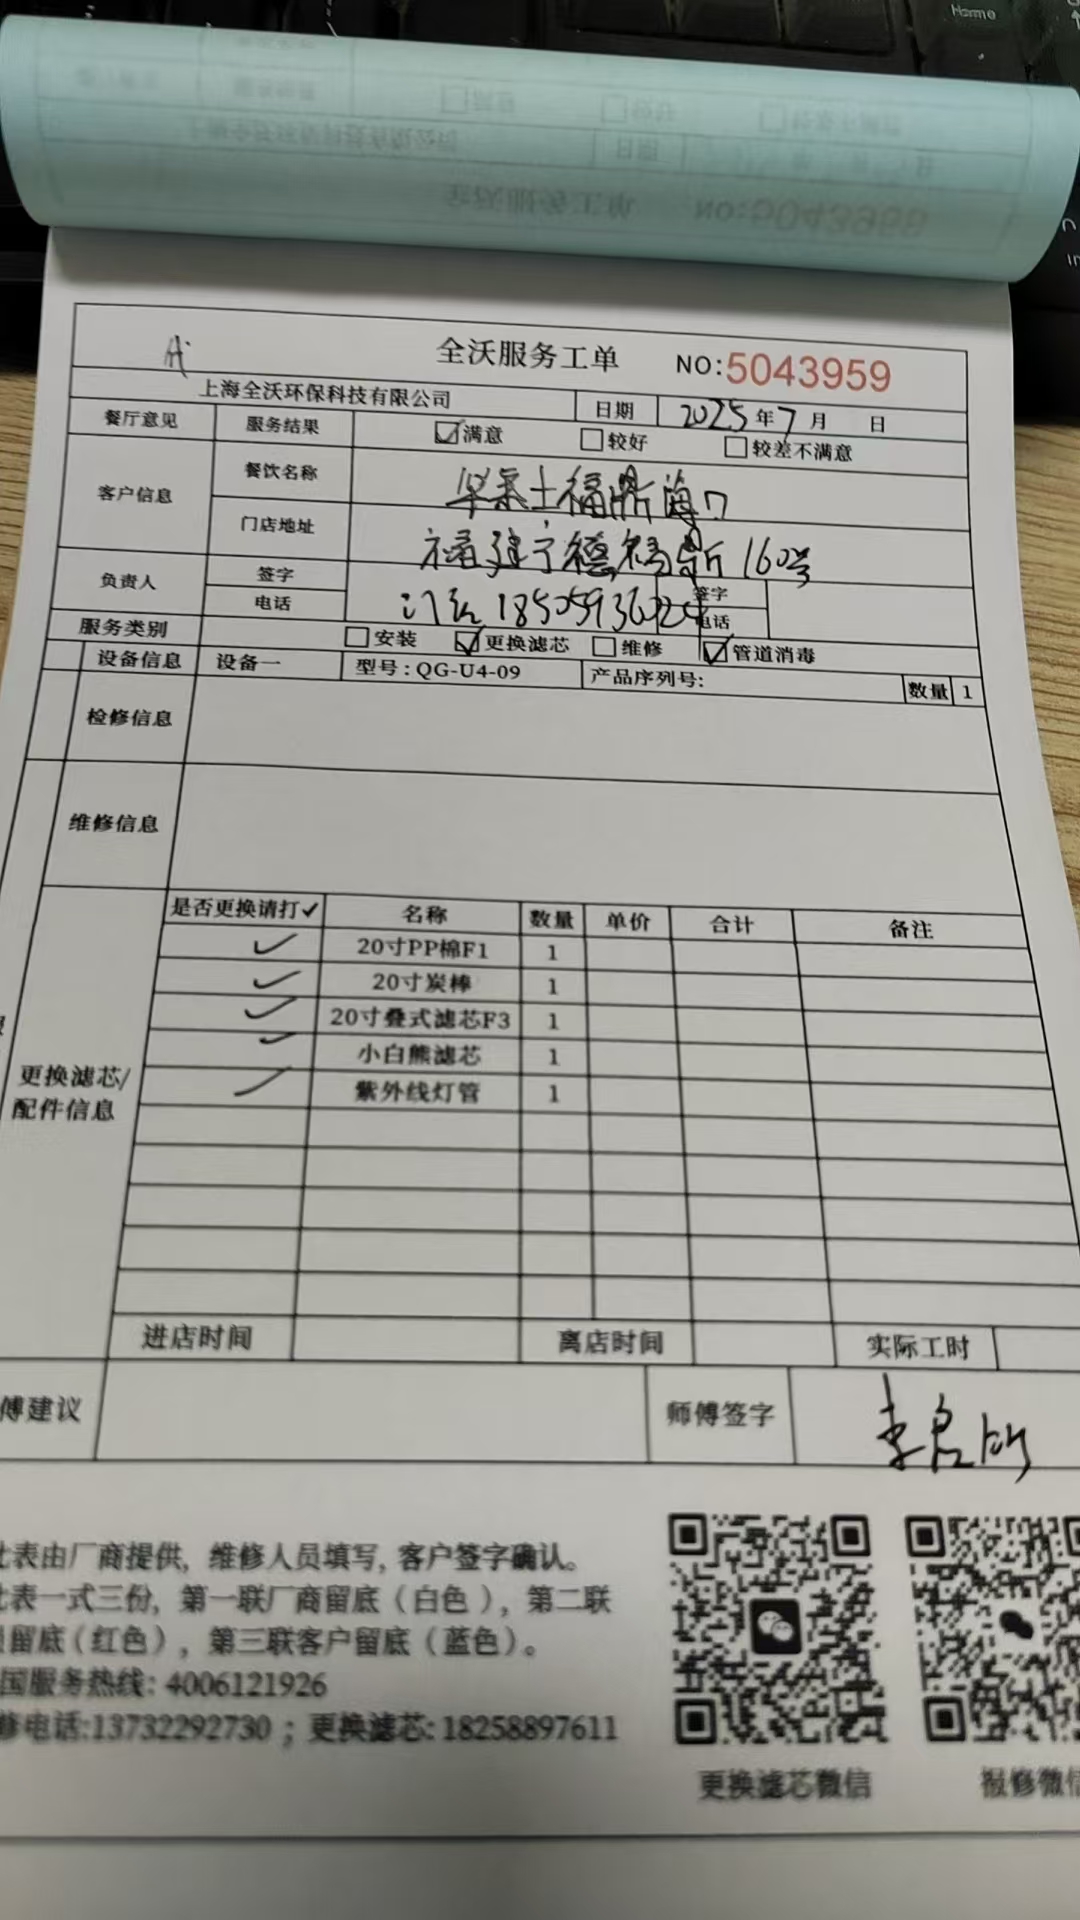 Home
全沃服务工单 NO:5043959
上海全沃环保科技有限公司 日期 2025年7月 日
餐厅意见 服务结果 ☑满意 □较好 □较差不满意
客户信息 餐饮名称 华莱士福鼎海口
门店地址 福建宁德福鼎 160号
负责人 签字 签字
电话 电话
服务类别 □安装 ☑更换滤芯 □维修 ☑管道消毒
设备信息 设备一 型号:QG-U4-09 产品序列号: 数量 1
检修信息
维修信息
更换滤芯/
配件信息
是否更换请打✓ 名称 数量 单价 合计 备注
✓ 20寸PP棉F1 1
✓ 20寸炭棒 1
✓ 20寸叠式滤芯F3 1
✓ 小白熊滤芯 1
✓ 紫外线灯管 1
进店时间 离店时间 实际工时
傅建议 师傅签字
此表由厂商提供, 维修人员填写, 客户签字确认。
此表一式三份, 第一联厂商留底（白色）, 第二联
留底(红色), 第三联客户留底（蓝色）。
国服务热线: 4006121926
修电话:13732292730 ; 更换滤芯: 18258897611
更换滤芯微信 报修微信